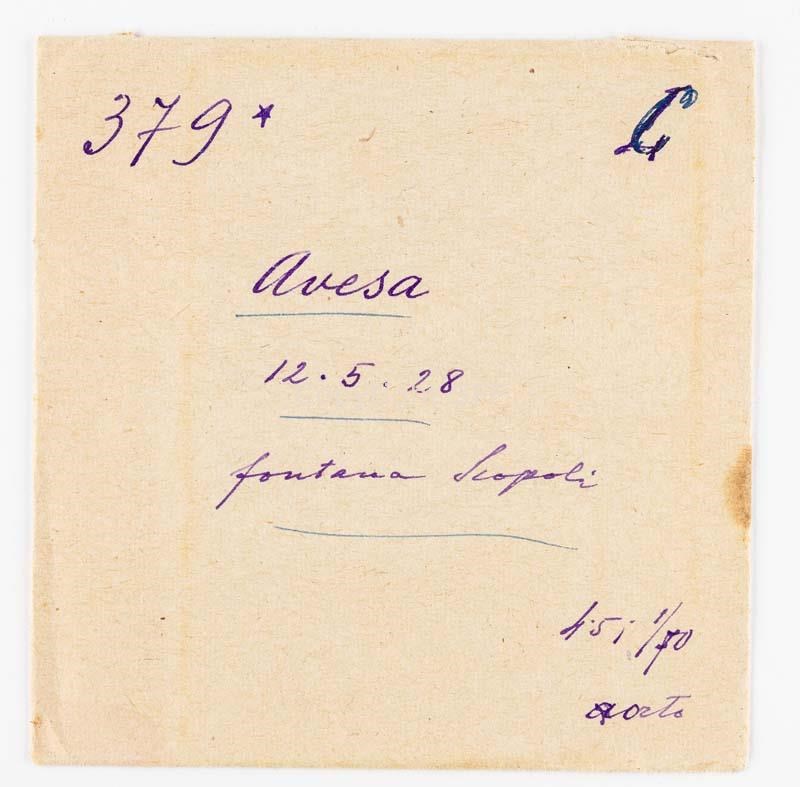 379*
Avesa
12.5.28
fontana Scopoli
4.5; 1/70
orto